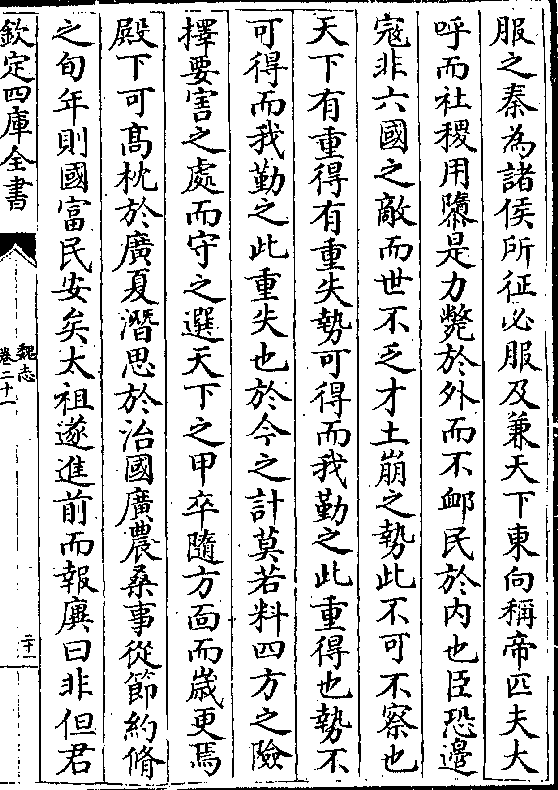 服之秦為諸侯所征必服及兼天下東向稱帝匹夫大
呼而社稷用隳是力斃於外而不䘏民於内也臣恐邊
寇非六國之敵而世不乏才土崩之勢此不可不察也
天下有重得有重失勢可得而我勤之此重得也勢不
可得而我勤之此重失也於今之計莫若料四方之險
擇要害之處而守之選天下之甲卒隨方面而歳更焉
殿下可髙枕於廣夏潛思於治國廣農桑事從節約脩
之旬年則國富民安矣太祖遂進前而報廙曰非但君
欽定四庫全書
魏志
卷二十一
二十一